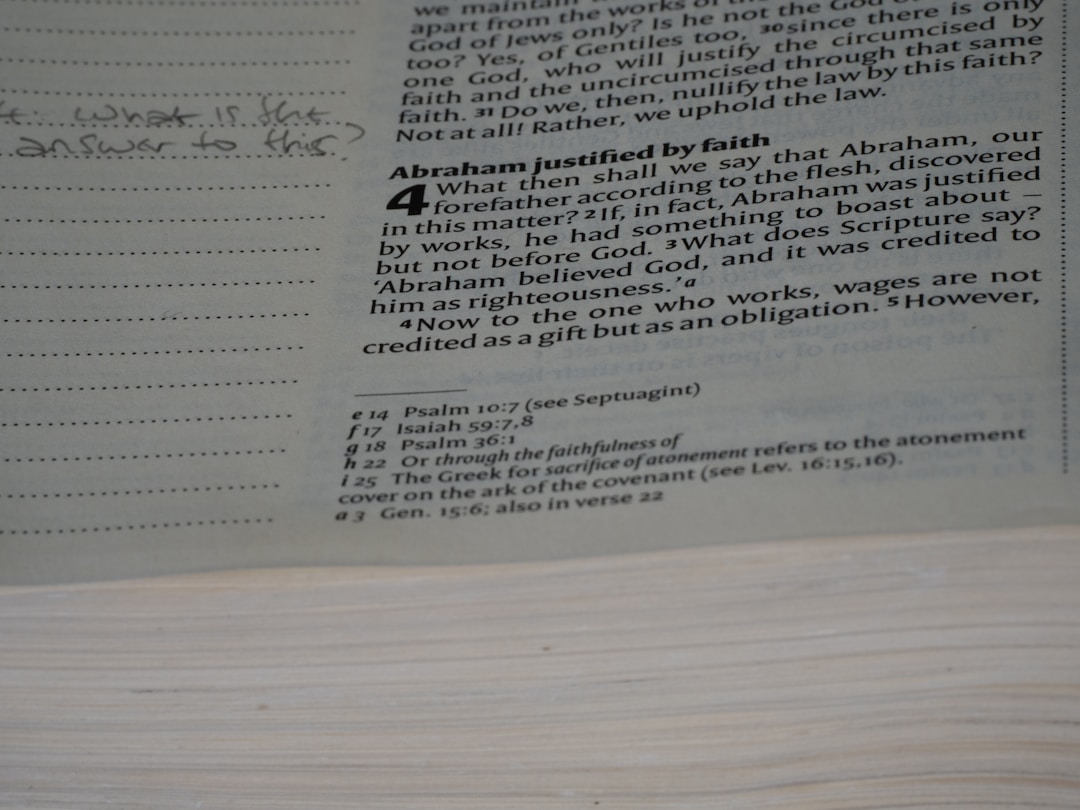 What is the
answer to this?
we maintain
apart from the works of
God of Jews only? Is he not the God of
too? Yes, of Gentiles too, 30 since there is only
one God, who will justify the circumcised by
faith and the uncircumcised through that same
faith. 31 Do we, then, nullify the law by this faith?
Not at all! Rather, we uphold the law.
Abraham justified by faith
4 What then shall we say that Abraham, our
forefather according to the flesh, discovered
in this matter? 2 If, in fact, Abraham was justified
by works, he had something to boast about –
but not before God. 3 What does Scripture say?
‘Abraham believed God, and it was credited to
him as righteousness.’ a
4 Now to the one who works, wages are not
credited as a gift but as an obligation. 5 However,
e 14 Psalm 10:7 (see Septuagint)
f 17 Isaiah 59:7,8
g 18 Psalm 36:1
h 22 Or through the faithfulness of
i 25 The Greek for sacrifice of atonement refers to the atonement
cover on the ark of the covenant (see Lev. 16:15,16).
a 3 Gen. 15:6; also in verse 22